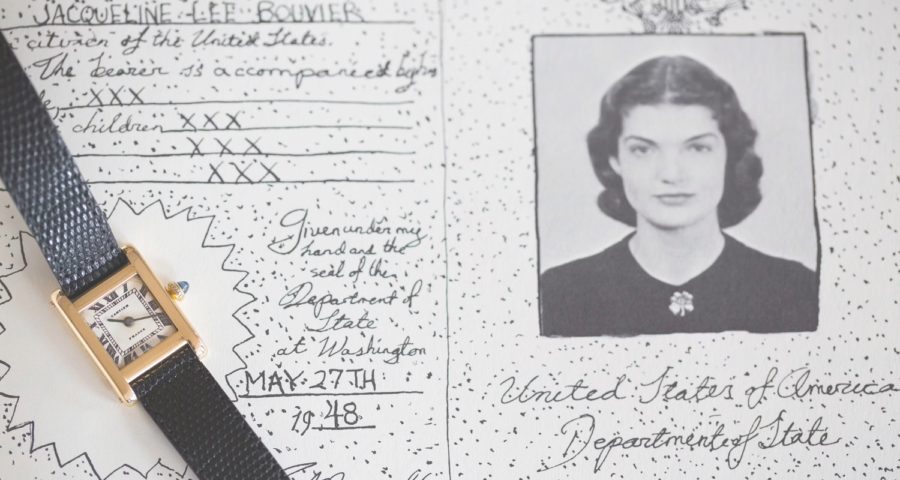 JACQUELINE LEE BOUVIER
citizen of the United States.
The bearer is accompanied by his
XXX
children XXX
XXX
XXX
Given under my
hand and the
seal of the
Department of
State
at Washington
MAY 27TH
1948
CARTIER
United States of America
Department of State